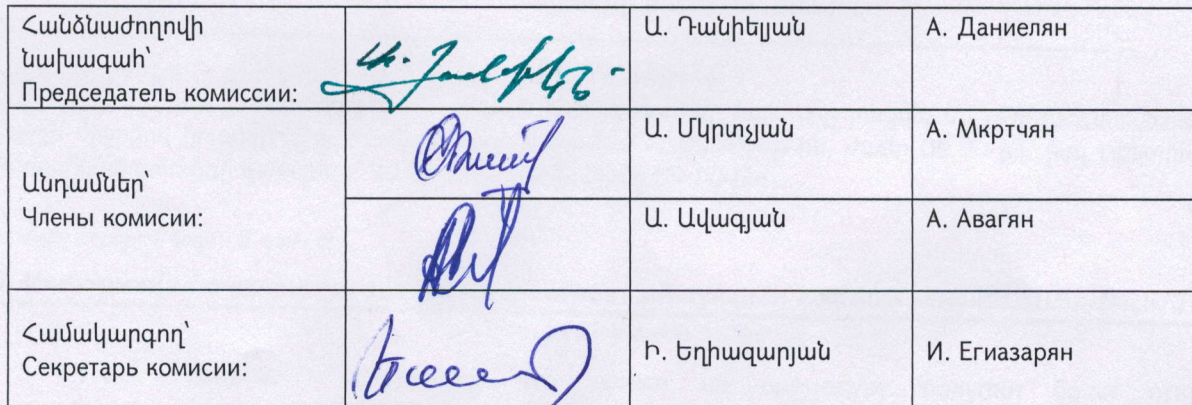 Հանձնաժողովի
նախագահ՝
Председатель комиссии:
Ա. Դանիելյան
А. Даниелян
Անդամներ՝
Члены комисии:
Ա. Մկրտչյան
А. Мкртчян
Ա. Ավագյան
А. Авагян
Համակարգող՝
Секретарь комисии:
Ի. Եղիազարյան
И. Егиазарян